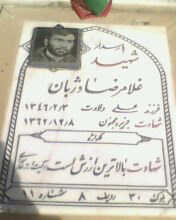 پاسدار
شهید
غلامرضا وژبان
فرزند علی ولادت ۱۳۴۶/۲/۳
شهادت جزیره مجنون ۱۳۶۲/۱۲/۸
شهادت بالاترین ارزش است
۳۰ ردیف ۸ شماره ۱۱